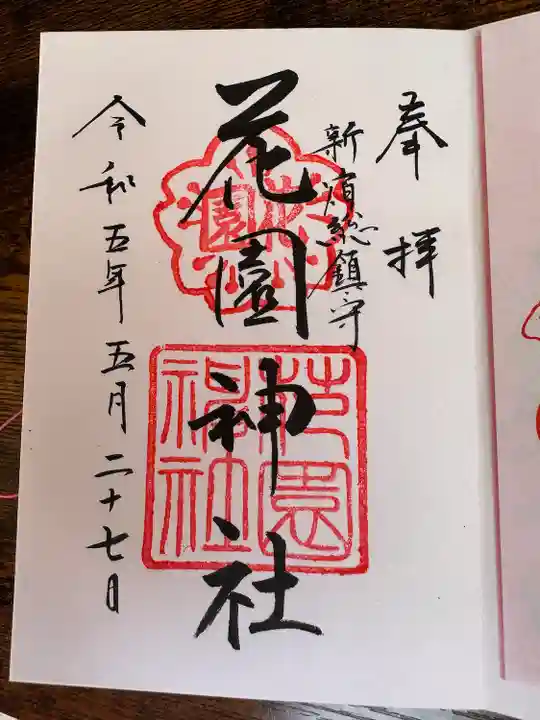 奉拝
新宿総鎮守
花園神社
花園
花園神社
令和五年五月二十七日